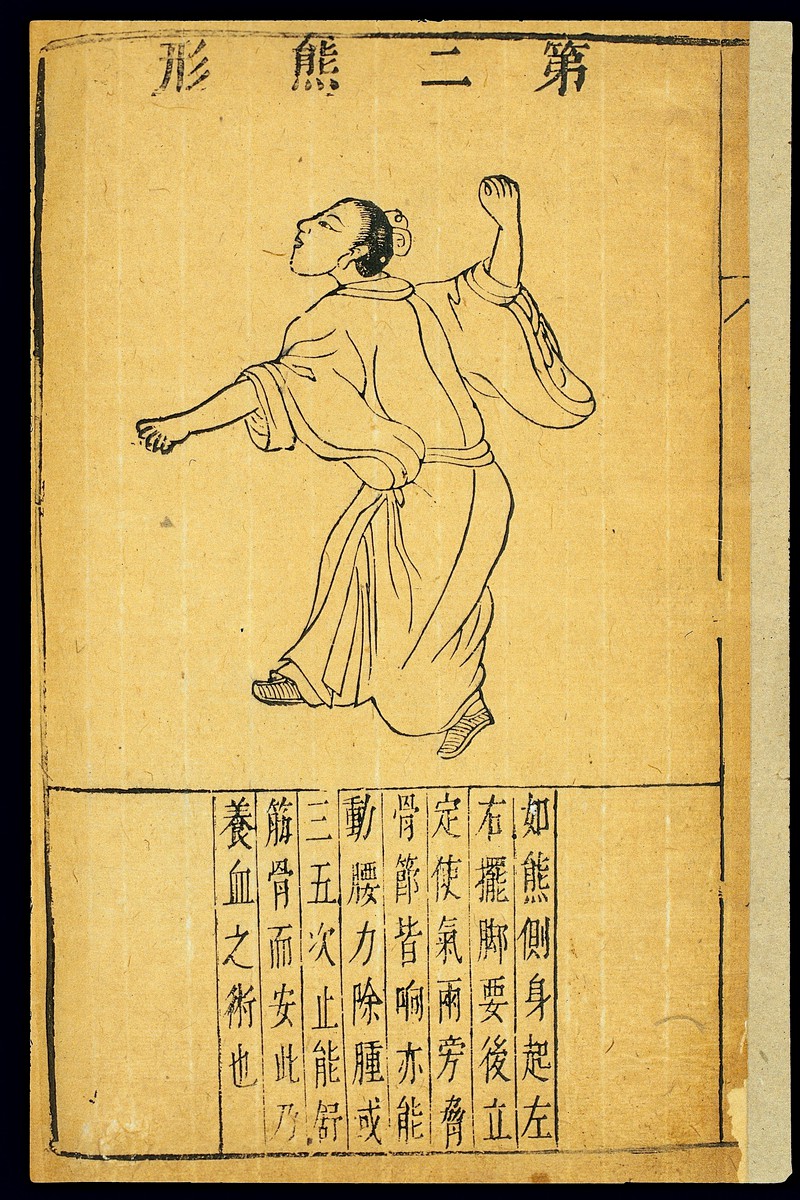 第二熊形
如熊側身起左
右擺脚要後立
定使氣兩旁脅
骨節皆响亦能
動腰力除腫或
三五次止能舒
筋骨而安此乃
養血之術也